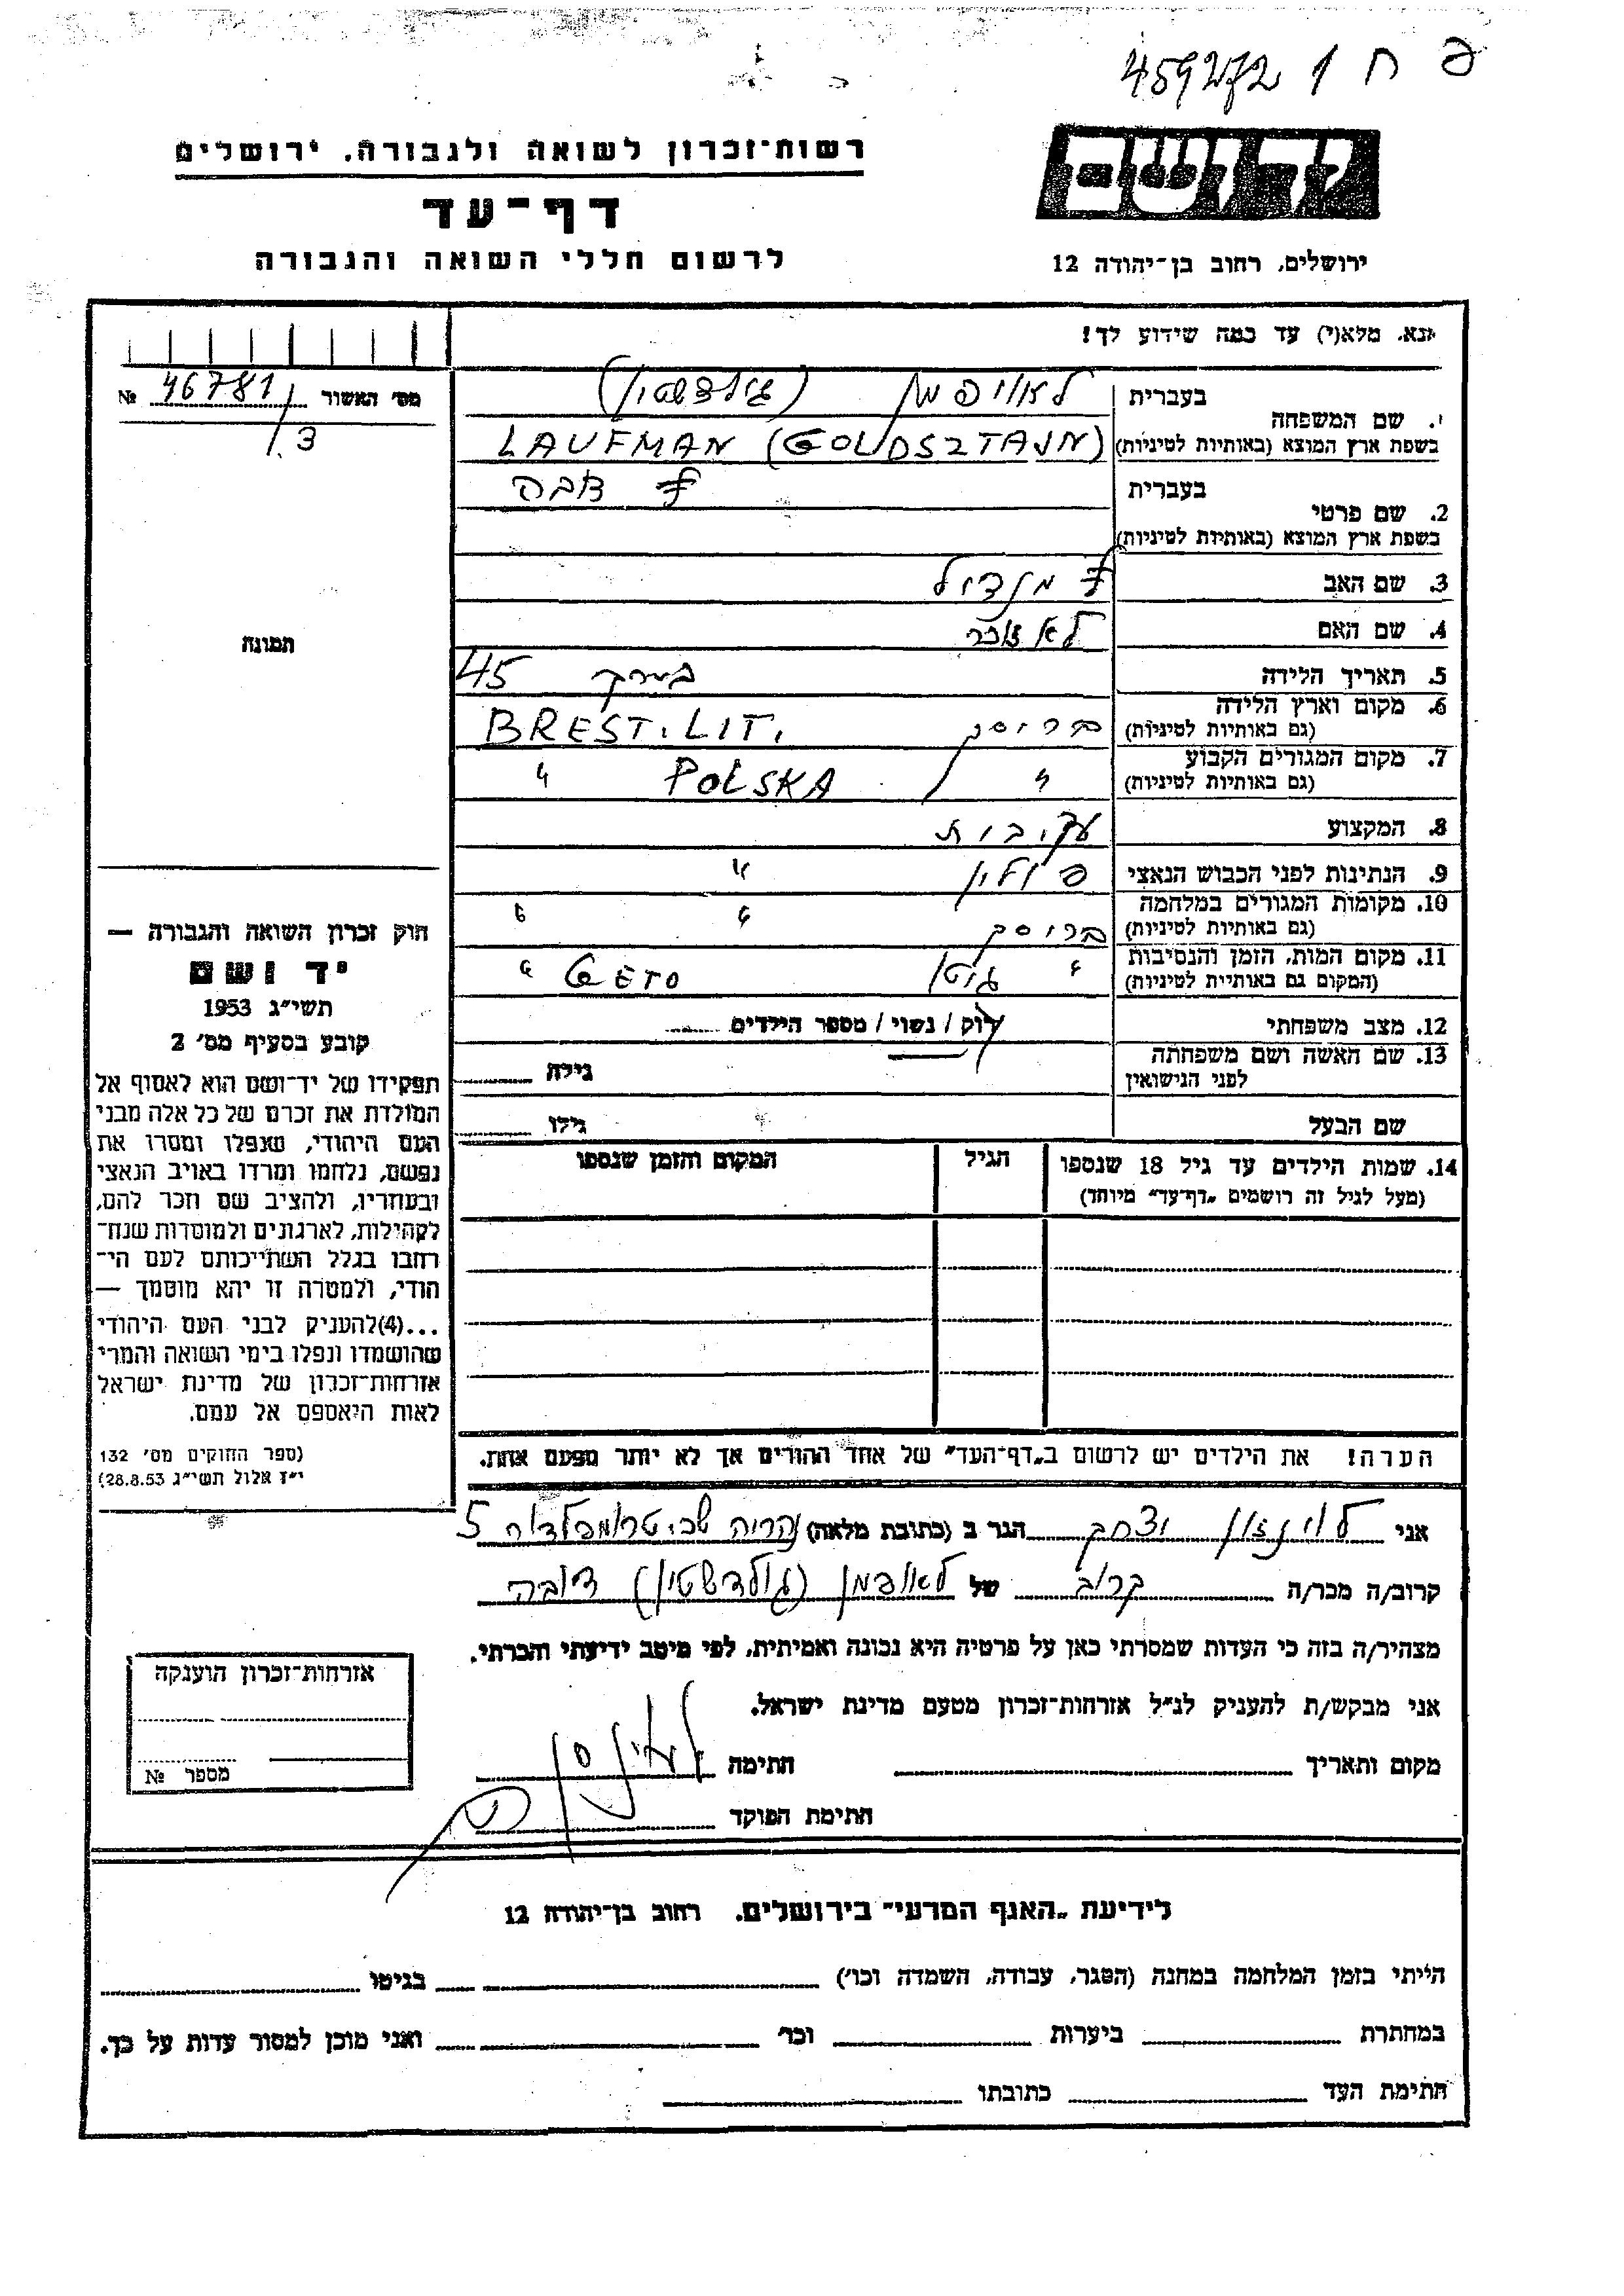 459272 1 ח פ
יד ושם
ירושלים, רחוב בן־יהודה 12
רשות־זכרון לשואה ולגבורה, ירושלים
דף־עד
לרשום חללי השואה והגבורה
נא, מלא(י) עד כמה שידוע לך!
מס׳ האשור 46781 №
/3
1. שם המשפחה
בעברית לאופמן (גולדשטיין)
בשפת ארץ המוצא (באותיות לטיניות) LAUFMAN (GOLDSZTAJN)
2. שם פרטי
בעברית דבה
בשפת ארץ המוצא (באותיות לטיניות)
3. שם האב מנדיל
4. שם האם לא זוכר
5. תאריך הלידה בערך 45
6. מקום וארץ הלידה בריסק BREST. LIT.
(גם באותיות לטיניות)
7. מקום המגורים הקבוע " / POLSKA "
(גם באותיות לטיניות)
8. המקצוע
9. הנתינות לפני הכבוש הנאצי פולין "
10. מקומות המגורים במלחמה בריסק " "
(גם באותיות לטיניות)
11. מקום המות, הזמן והנסיבות " גיטו GETO "
(המקום גם באותיית לטיניות)
12. מצב משפחתי רוק / נשוי / מספר הילדים
13. שם האשה ושם משפחתה
לפני הנישואין
גילה
שם הבעל
גילו
14. שמות הילדים עד גיל 18 שנספו
(מעל לגיל זה רושמים „דף־עד” מיוחד)
הגיל
המקום והזמן שנספו
הערה! את הילדים יש לרשום ב„דף־העד” של אחד ההורים אך לא יותר מפעם אחת.
תמונה
חוק זכרון השואה והגבורה —
יד ושם
תשי״ג 1953
קובע בסעיף מס׳ 2
תפקידו של יד־ושם הוא לאסוף אל
המולדת את זכרם של כל אלה מבני
העם היהודי, שנפלו ומסרו את
נפשם, נלחמו ומרדו באויב הנאצי
ובעוזריו, ולהציב שם וזכר להם,
לקהילות, לארגונים ולמוסדות שנח־
רחבו בגלל השתייכותם לעם הי־
הודי, ולמטרה זו יהא מוסמך —
...(4)להעניק לבני העם היהודי
שהושמדו ונפלו בימי השואה והמרי
אזרחות־זכרון של מדינת ישראל
לאות היאספם אל עמם.
(ספר החוקים מס׳ 132
י״ז אלול תשי״ג 28.8.53)
אני לוינזון יצחק הגר ב (כתובת מלאה) נהריה שכ׳ טרומפלדור 5
קרוב/ה מכר/ה קרוב של לאופמן (גולדשטיין) דובה
מצהיר/ה בזה כי העדות שמסרתי כאן על פרטיה היא נכונה ואמיתית, לפי מיטב ידיעתי והכרתי.
אני מבקש/ת להעניק לנ״ל אזרחות־זכרון מטעם מדינת ישראל.
מקום ותאריך
חתימה
חתימת הפוקד
אזרחות־זכרון הוענקה
מספר №
לידיעת „האגף המדעי” בירושלים, רחוב בן־יהודה 12
הייתי בזמן המלחמה במחנה (הסגר, עבודה, השמדה וכו׳) בגיטו
במחתרת ביערות וכו׳ ואני מוכן למסור עדות על כך.
חתימת העד כתובתו